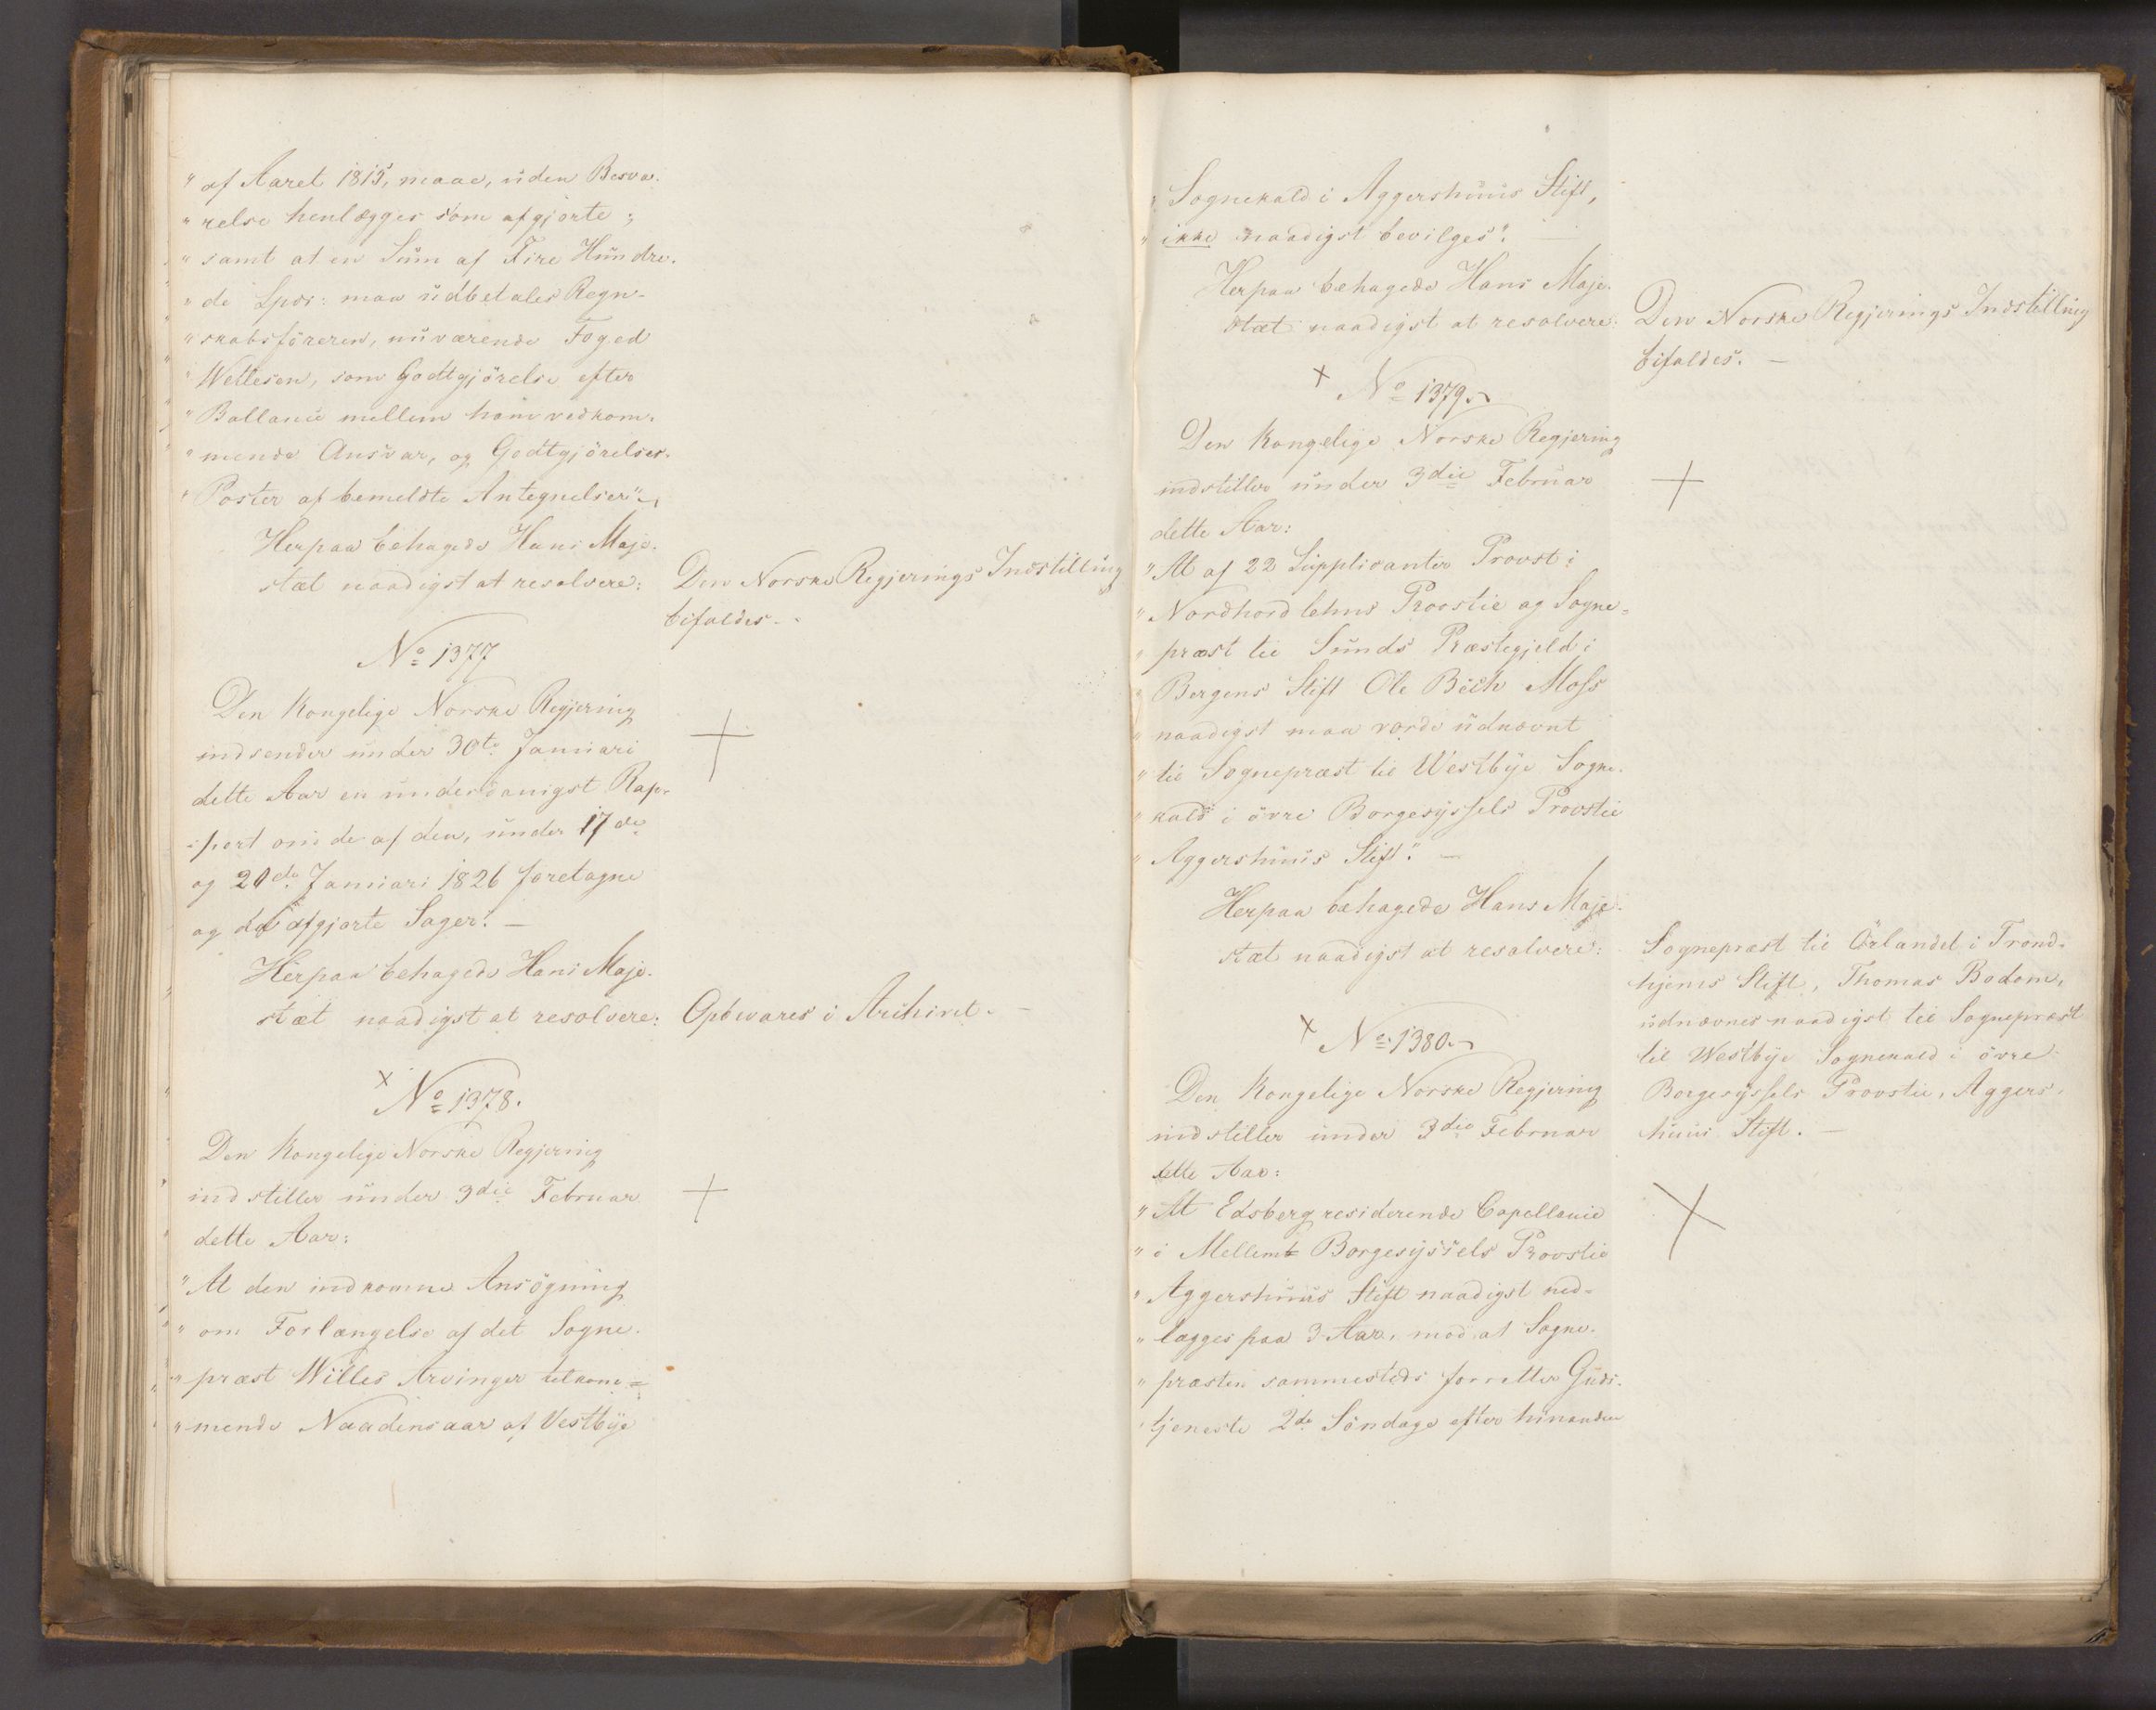 " af Aaret 1815, maae, uden Besva-
" relse henlægges som afgjorte;
" samt at en Sum af Fire Hundre-
" de Spdr: maa udbetales Regn-
" skabsføreren, nuværende Foged
" Wellesen, som Godtgjörelse efter
" Ballance mellem ham vedkom-
" mende Ansvar, og Godtgjörelses-
" Poster af bemeldte Antegnelser".
Herpaa behagede Hans Maje-
stæt naadigst at resolvere:
Den Norske Regjerings Indstilling
bifaldes. -
No 1377
Den Kongelige Norske Regjering
indsender under 30te Januari
dette Aar en underdanigst Rap-
-port om de af den, under 17de
og 20de Januari 1826 foretagne
og afgjorte Sager. -
Herpaa behagede Hans Maje-
stæt naadigst at resolvere:
Opbevares i Archivet. -
x No 1378.
Den Kongelige Norske Regjering
indstiller under 3die Februar
dette Aar:
" At den indkomne Ansögning
" om Forlængelse af det Sogne-
" præst Willes Arvinger tilkom=
" mende Naadensaar af Vestbye
" Sognekald i Aggershuus Stift,
" ikke naadigst bevilges". -
Herpaa behagede Hans Maje-
stæt naadigst at resolvere:
Den Norske Regjerings Indstilling
bifaldes. -
x No 1379.
Den Kongelige Norske Regjering
indstiller under 3die Februar
dette Aar:
" At af 22 Supplicanter Provst i
" Nordhordlehns Provstie og Sogne=
" præst til Sunds Præstegjeld i
" Bergens Stift Ole Bëch Moss
" naadigst maa vorde udnævnt
" til Sognepræst til Westbye Sogne-
" kald i övre Borgesyssels Provstie
" Aggershuus Stift". -
Herpaa behagede Hans Maje-
stæt naadigst at resolvere:
Sognepræst til Örlandet i Trond-
hjems Stift, Thomas Bodom,
udnævnes naadigst til Sognepræst
til Westbye Sognekald i övre
Borgesyssels Provstie, Aggers-
huus Stift. -
x No 1380.
Den Kongelige Norske Regjering
indstiller under 3die Februar
dette Aar:
" At Edsberg residerende Capellanie
" i Mellem Borgesyssels Provstie
" Aggershuus Stift naadigst ned-
" lægges paa 3 Aar, mod at Sogne-
" præsten sammesteds forretter Guds-
" tjeneste 2de Söndage efter hinanden